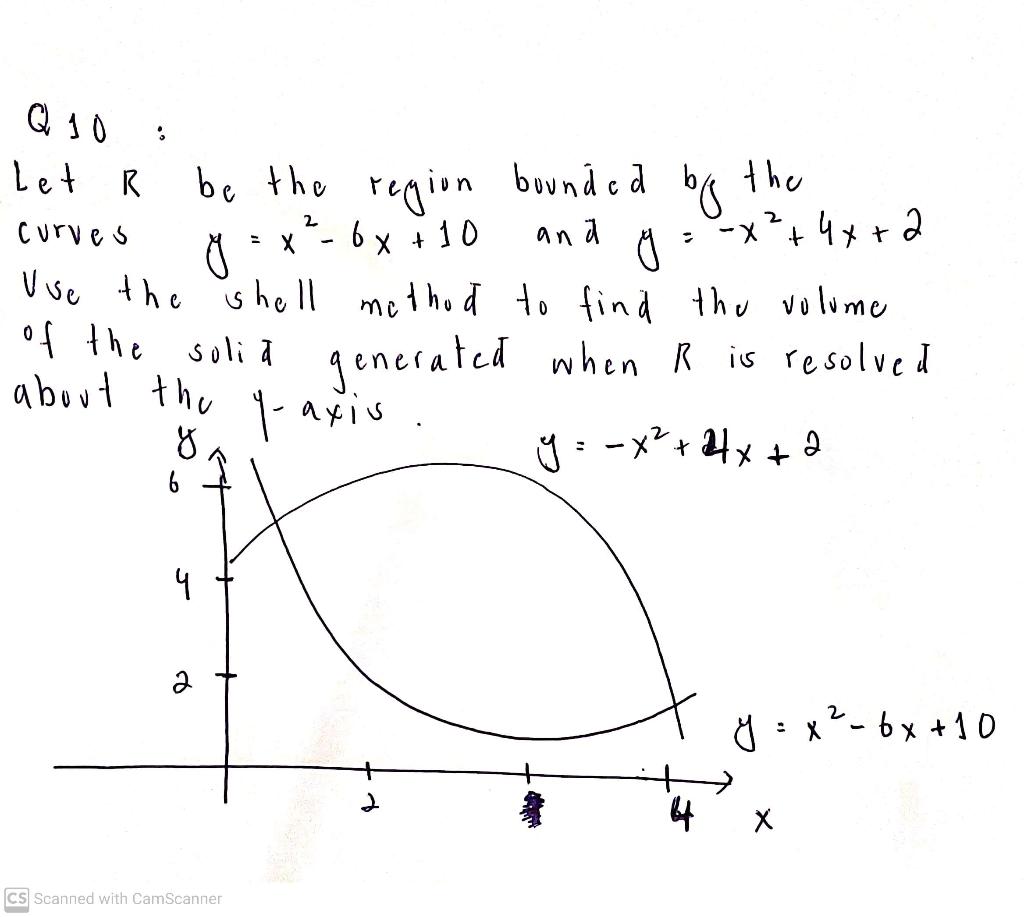 Q 10 :
Let R be the region bounded by the
curves y = x² - 6x + 10 and y = -x² + 4x + 2
Use the shell method to find the volume
of the solid generated when R is resolved
about the y-axis .
y
y = -x² + 4x + 2
6
4
2
y = x² - 6x + 10
2
4
x
CS Scanned with CamScanner